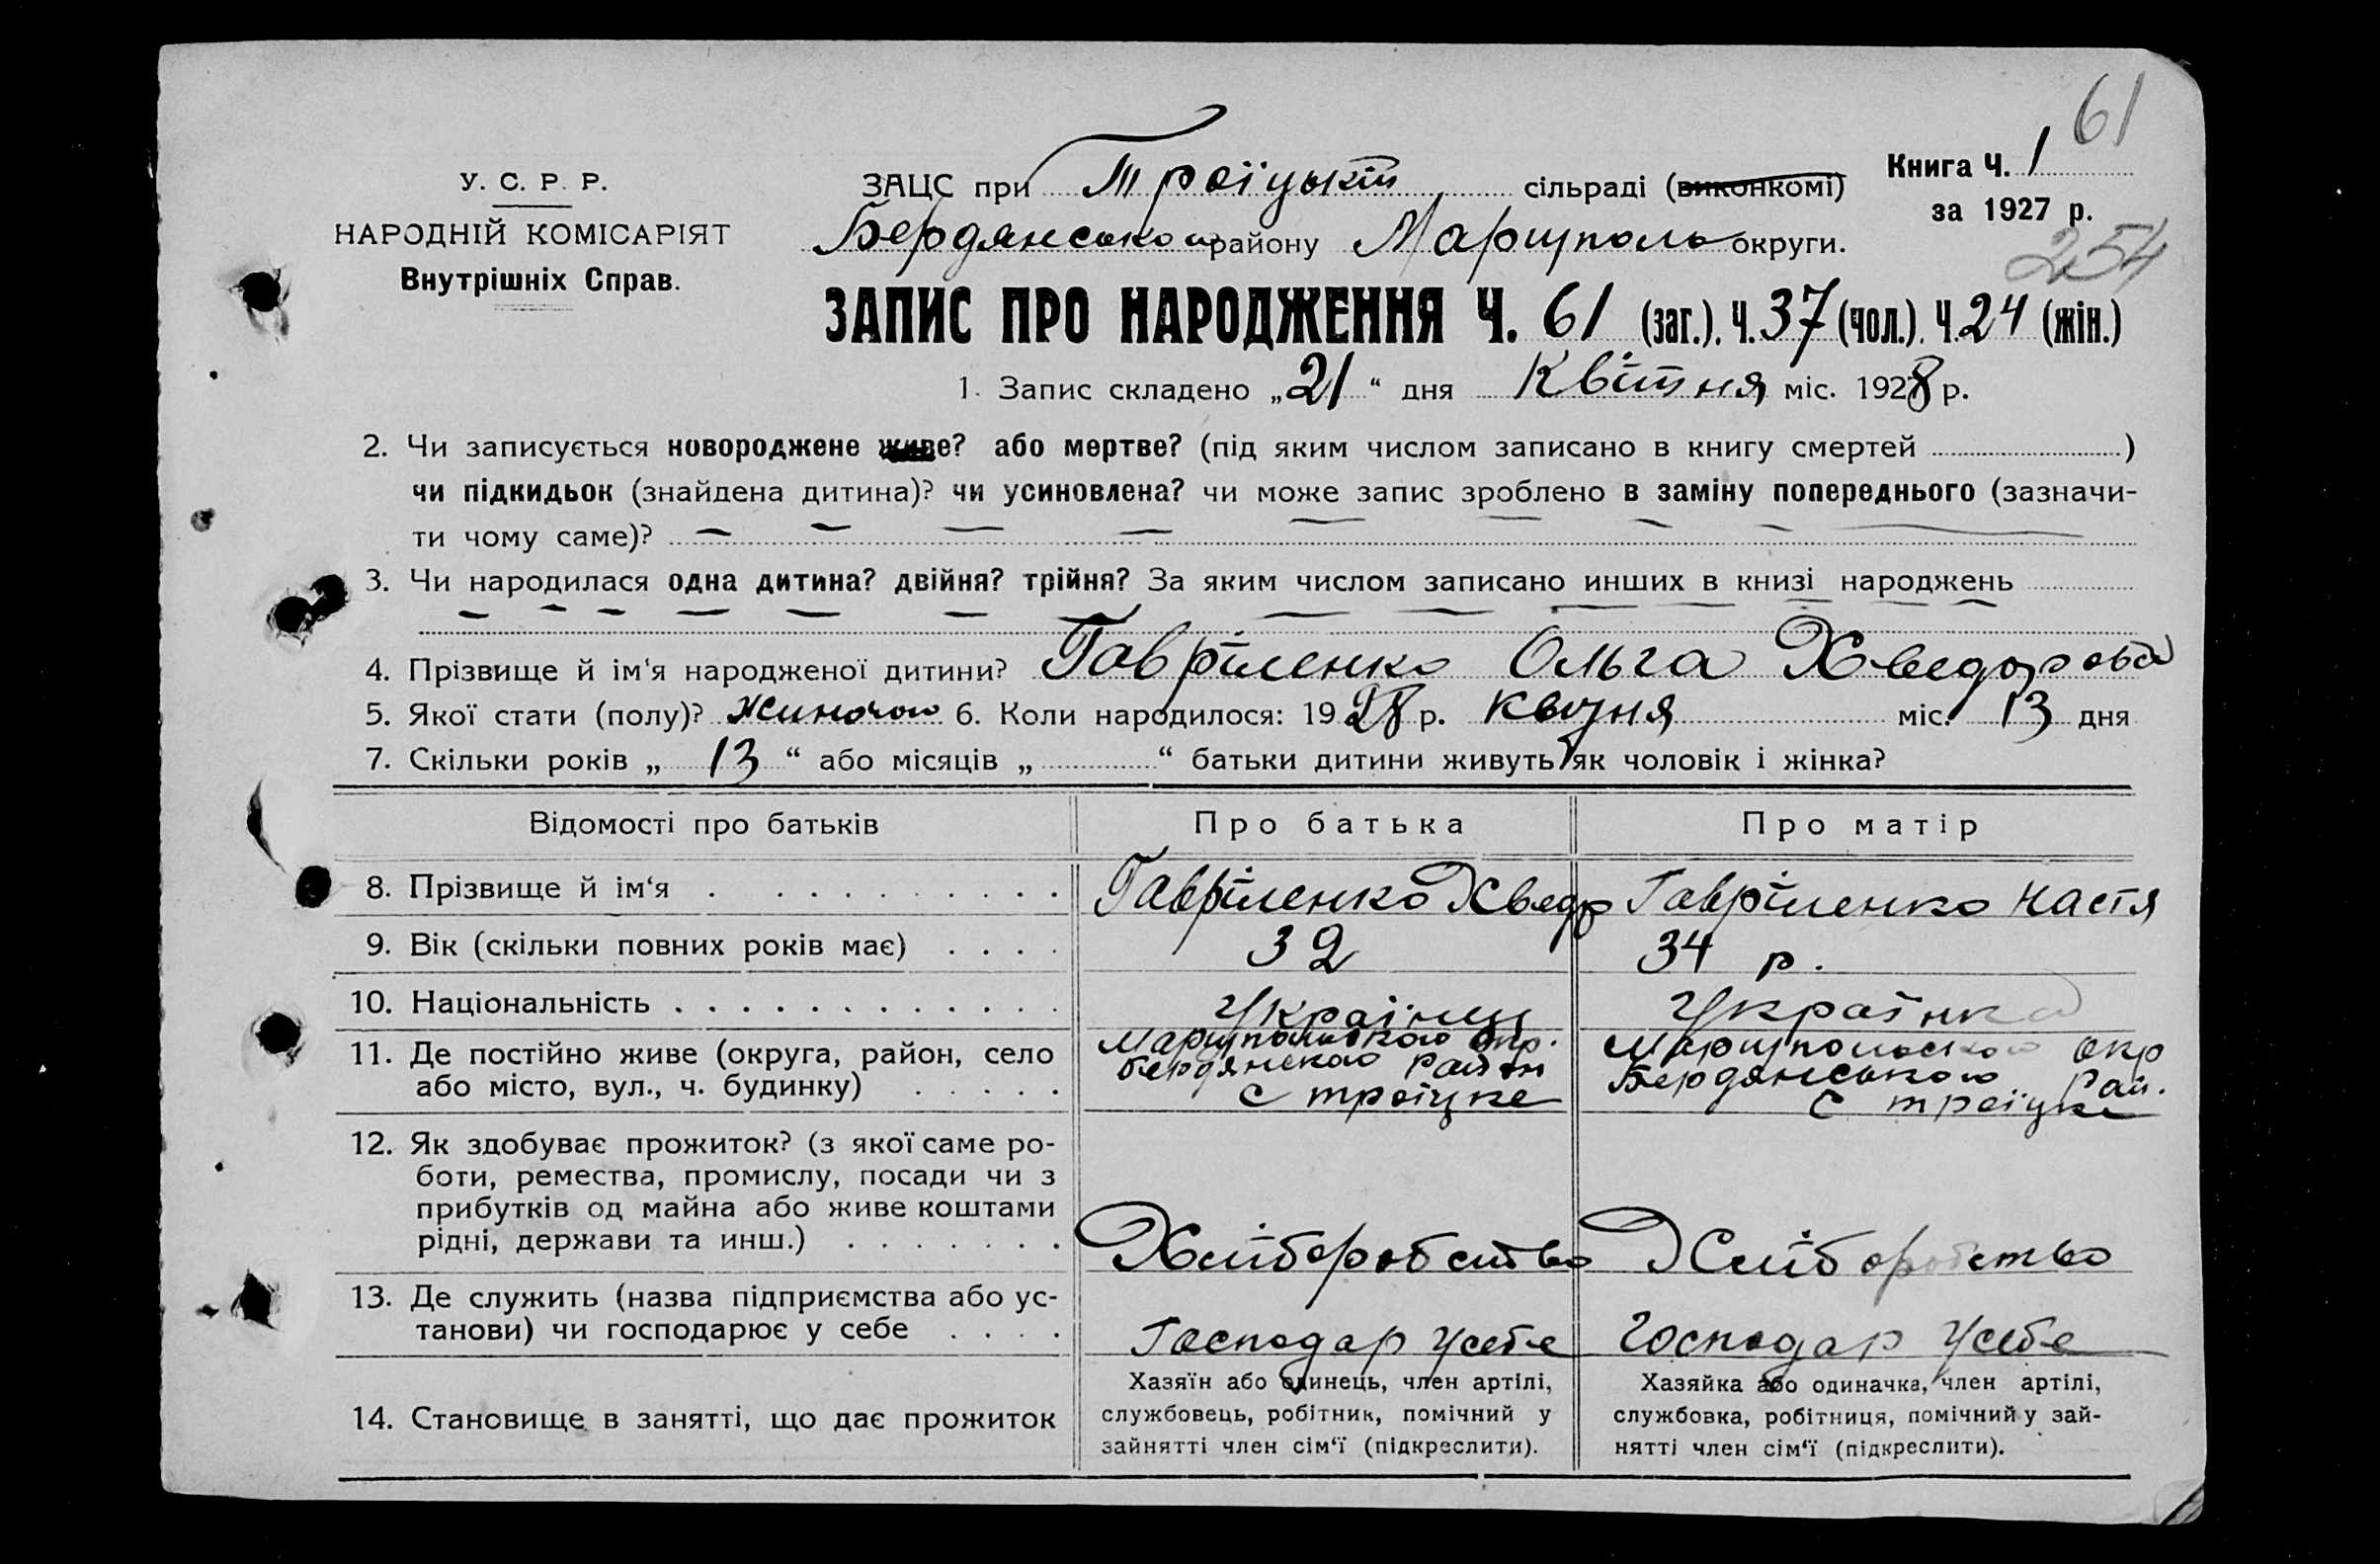 61
У. С. Р. Р.
НАРОДНІЙ КОМІСАРІЯТ
Внутрішніх Справ.
ЗАЦС при Троїцькій сільраді (виконкомі)
Книга Ч. 1
за 1927 р.
Бердянського району Маріуполь округи.
254
ЗАПИС ПРО НАРОДЖЕННЯ Ч. 61 (заг.). Ч. 37 (чол.). Ч. 24 (жін.)
1. Запис складено „21“ дня Квітня міс. 1928 р.
2. Чи записується новороджене живе? або мертве? (під яким числом записано в книгу смертей )
чи підкидьок (знайдена дитина)? чи усиновлена? чи може запис зроблено в заміну попереднього (зазначи-
ти чому саме)?
3. Чи народилася одна дитина? двійня? трійня? За яким числом записано инших в книзі народжень
4. Прізвище й ім‘я народженої дитини? Гавріленко Ольга Хведорова
5. Якої стати (полу)? Жиночою 6. Коли народилося: 1928 р. міс. 13 дня
7. Скільки років „ 13 “ або місяців „ “ батьки дитини живуть як чоловік і жінка?
Відомості про батьків Про батька Про матір
8. Прізвище й ім‘я Гавріленко Хведір Гавріленко Настя
9. Вік (скільки повних років має) 32 34 р.
10. Національність Українец Українка
11. Де постійно живе (округа, район, село
або місто, вул., ч. будинку)
Маріупольского окр.
Бердянского Район
С троїцке
Маріупольського окр
Бердянського Рай.
С троїцке
12. Як здобуває прожиток? (з якої саме ро-
боти, ремества, промислу, посади чи з
прибутків од майна або живе коштами
рідні, держави та инш.) Хліборобство Хліборобство
13. Де служить (назва підприємства або ус-
танови) чи господарює у себе Господар усебе Господар усебе
14. Становище в занятті, що дає прожиток
Хазяїн або одинець, член артілі,
службовець, робітник, помічний у
зайнятті член сім‘ї (підкреслити).
Хазяйка або одиначка, член артілі,
службовка, робітниця, помічний у зай-
нятті член сім‘ї (підкреслити).